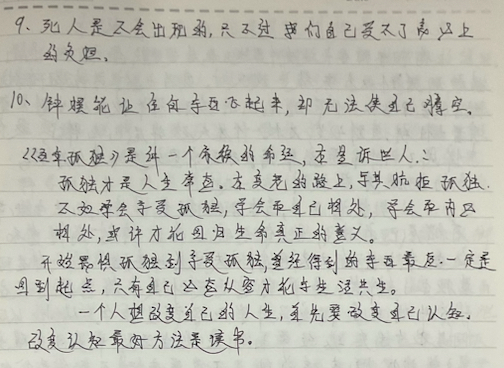 9、死人是不会出现的,只不过 我们自己受不了良心上
的负担。
10、钟摆能让任何东西飞起来,却无法使自己腾空。
《百年孤独》是讲一个家族的命运,在告诉世人:
孤独才是人生常态。在变老的路上,与其抗拒孤独.
不如学会享受孤独,学会和自己相处,学会和内心
相处,或许才能回归生命真正的意义。
开始畏惧孤独到享受孤独,曾经得到的东西最后一定是
回到起点,只有自己心态从容才能与生活共生。
一个人想改变自己的人生,首先要改变自己认知.
改变认知最好方法是读书。